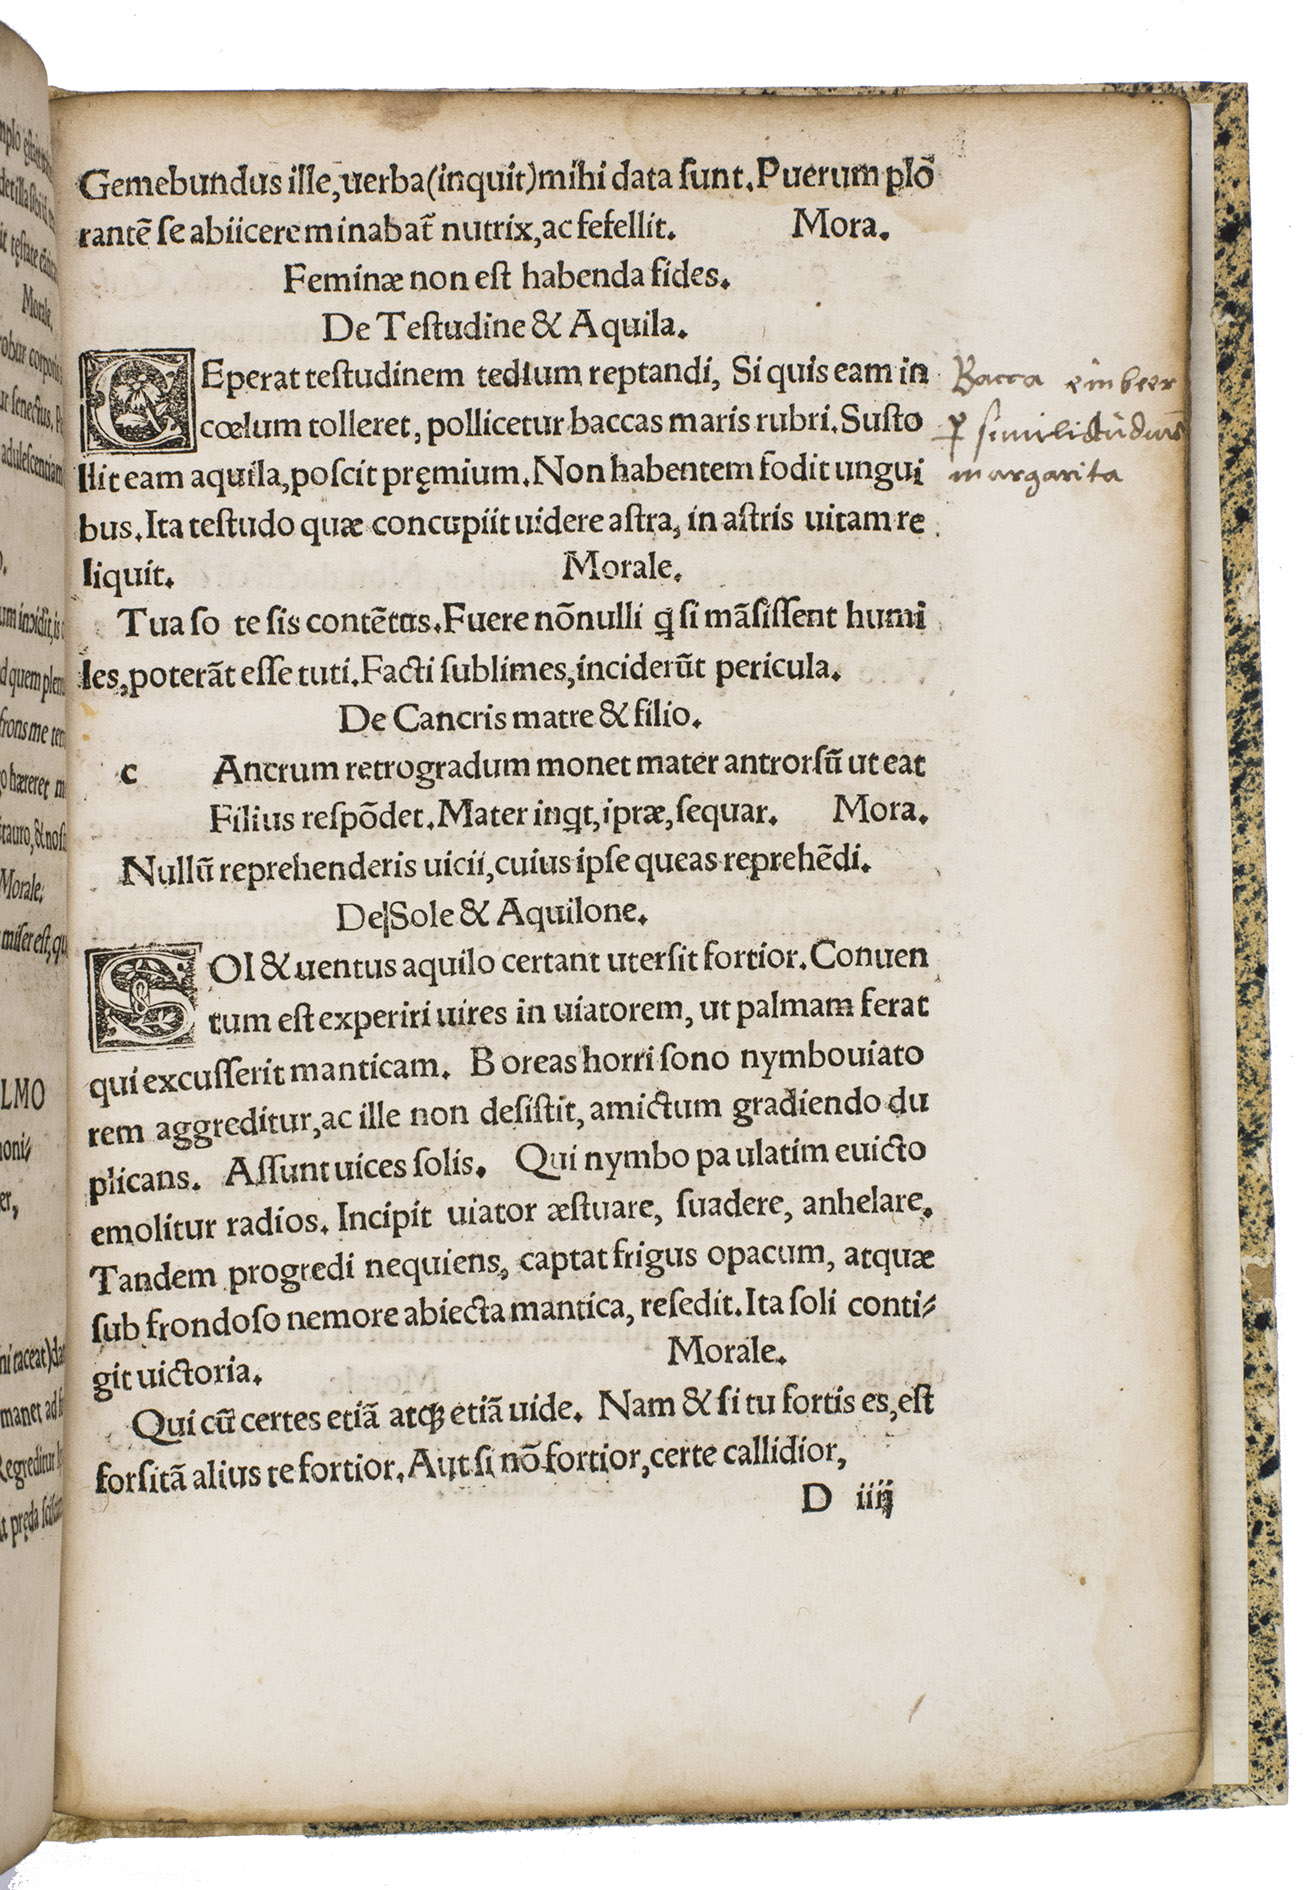 Gemebundus ille, uerba (inquit) mihi data sunt. Puerum plō
rantē se abiicere minabat̄ nutrix, ac fefellit. Mora.
Feminæ non est habenda fides.
De Testudine & Aquila.
CEperat testudinem tedium reptandi, Si quis eam in
cœlum tolleret, pollicetur baccas maris rubri. Susto
llit eam aquila, poscit pręmium. Non habentem fodit ungui
bus. Ita testudo quæ concupiit uidere astra, in astris uitam re
liquit. Morale.
Tua so te sis contētus. Fuere nōnulli q̄ si māsissent humi
les, poterāt esse tuti. Facti sublimes, inciderūt pericula.
De Cancris matre & filio.
c Ancrum retrogradum monet mater antrorsū ut eat
Filius respōdet. Mater inqt, i præ, sequar. Mora.
Nullū reprehenderis uicii, cuius ipse queas reprehēdi.
De Sole & Aquilone.
SOl & uentus aquilo certant uter sit fortior. Conuen
tum est experiri uires in uiatorem, ut palmam ferat
qui excusserit manticam. Boreas horrisono nymbo uiato
rem aggreditur, ac ille non desistit, amictum gradiendo du
plicans. Assunt uices solis. Qui nymbo paulatim euicto
emolitur radios. Incipit uiator æstuare, suadere, anhelare.
Tandem progredi nequiens, captat frigus opacum, atquæ
sub frondoso nemore abiecta mantica, resedit. Ita soli conti⸗
git uictoria. Morale.
Qui cū certes etiā atq; etiā uide. Nam & si tu fortis es, est
forsitā alius te fortior. Aut si nō fortior, certe callidior,
D iiij
Bacca ein beer
ꝑ similitudinē
margarita